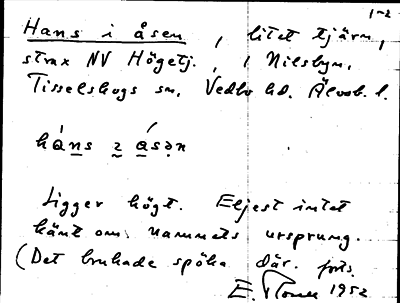 1-2
Hans i åsen, litet tjärn,
strax NV Högetj., i Nilsbyn,
Tisselskogs sn, Vedbo hd. Älvsb. l.
hans ɩ asən
Ligger högt. Eljest intet
känt om namnets ursprung.
(Det brukade spöka där. forts.
E. 1952